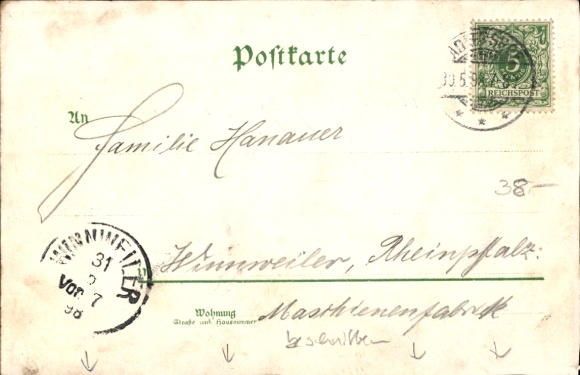 Postkarte
5
REICHSPOST
30.5.98
An
Familie Hanauer
38.-
WINNWEILER
31
5
Vor. 7
98
Winnweiler, Rheinpfalz.
Wohnung
Straße und Hausnummer
Maschienenfabrik
beschnitten